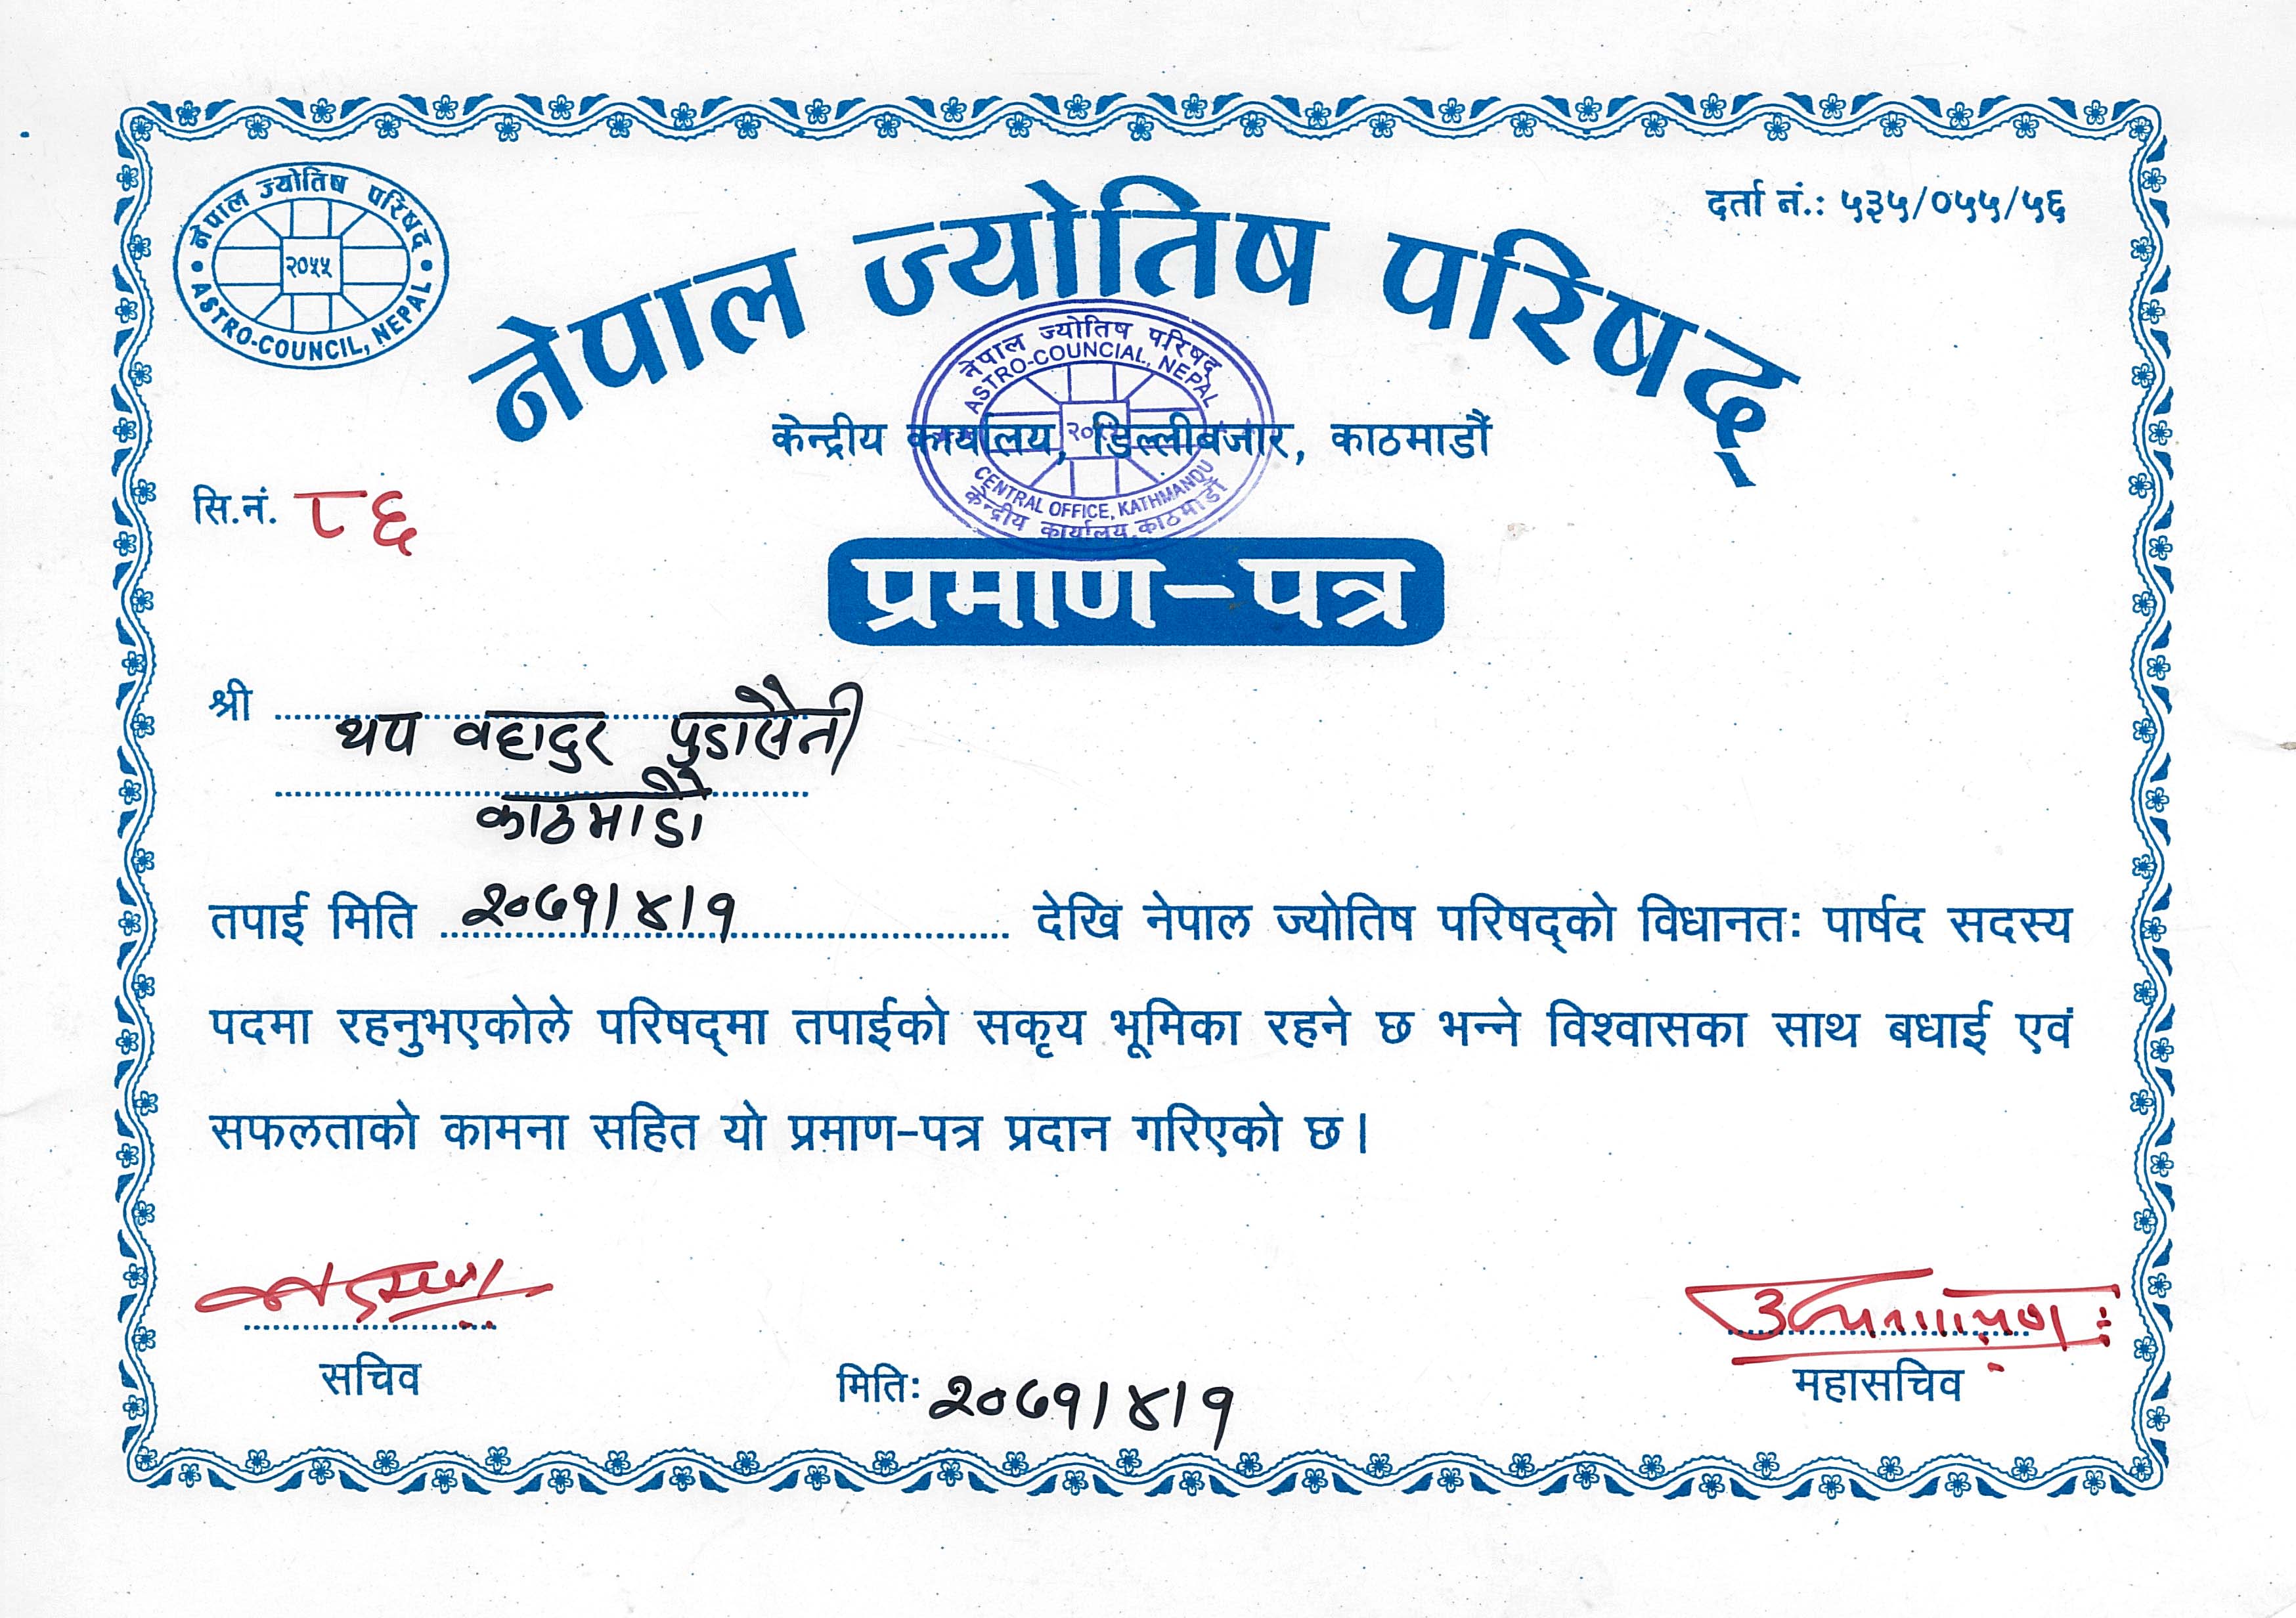 नेपाल ज्योतिष परिषद
२०५५
ASTRO-COUNCIL, NEPAL
दर्ता नं.: ५३५/०५५/५६
नेपाल ज्योतिष परिषद्
नेपाल ज्योतिष परिषद्
ASTRO-COUNCIAL, NEPAL
केन्द्रीय कार्यालय, डिल्लीबजार, काठमाडौं
CENTRAL OFFICE, KATHMANDU
केन्द्रीय कार्यालय, काठमाडौं
सि.नं. ८६
प्रमाण-पत्र
श्री थप वहादुर पुडासैनी
काठमाडौ
तपाई मिति २०७१।४।१ देखि नेपाल ज्योतिष परिषद्को विधानतः पार्षद सदस्य
पदमा रहनुभएकोले परिषद्मा तपाईको सकृय भूमिका रहने छ भन्ने विश्वासका साथ बधाई एवं
सफलताको कामना सहित यो प्रमाण-पत्र प्रदान गरिएको छ।
सचिव
मितिः २०७१।४।१
महासचिव